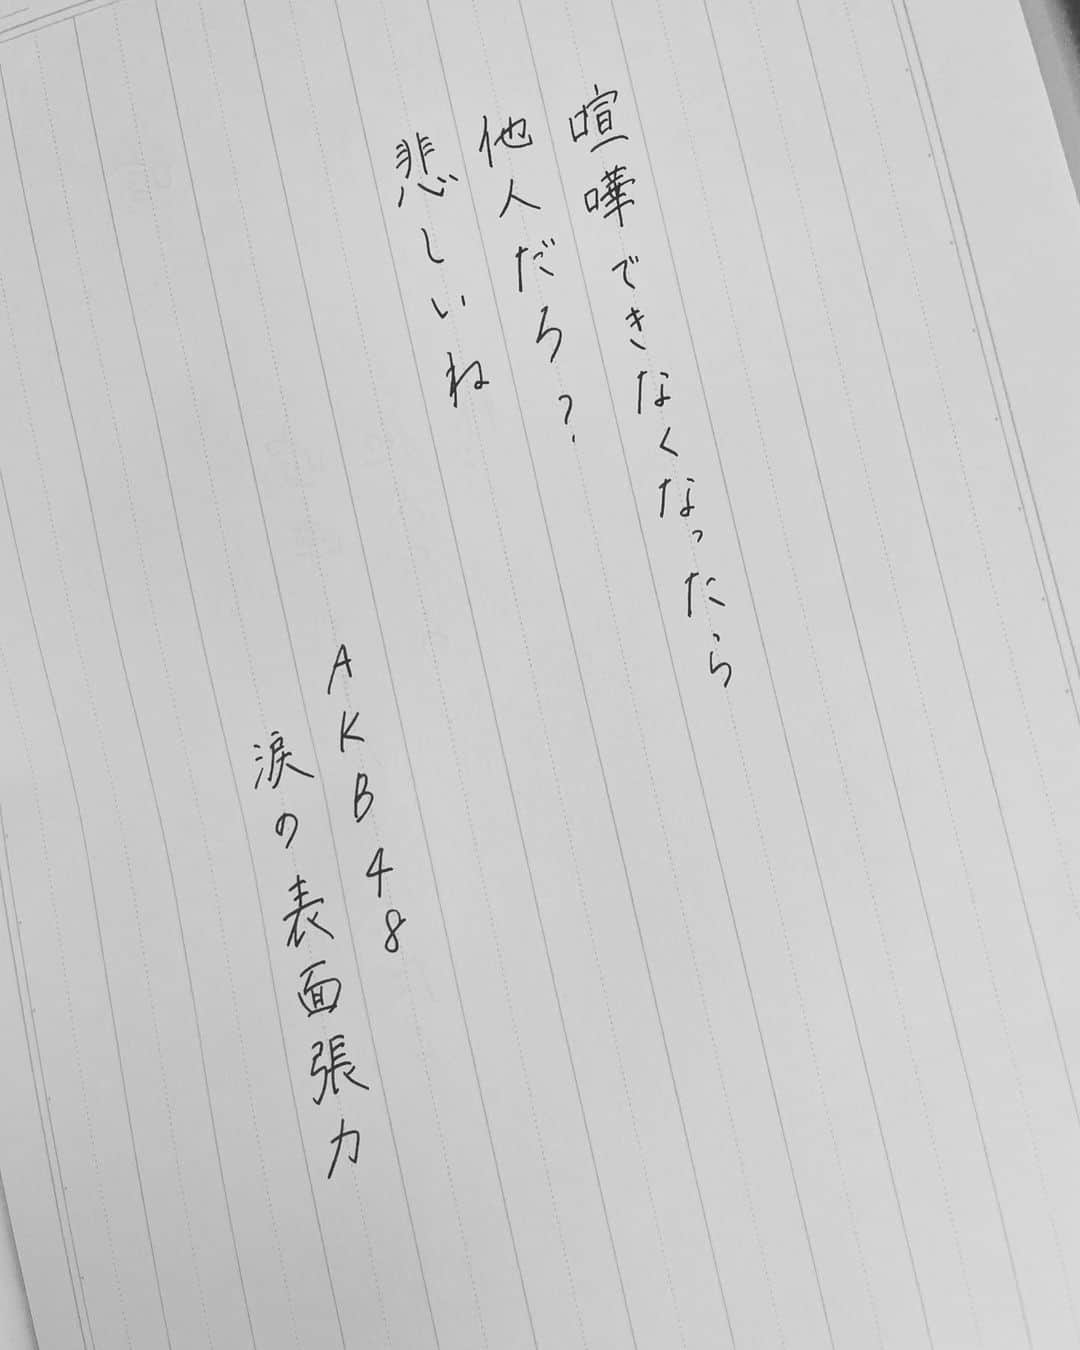 喧嘩できなくなったら
他人だろ？
悲しいね
AKB48
涙の表面張力